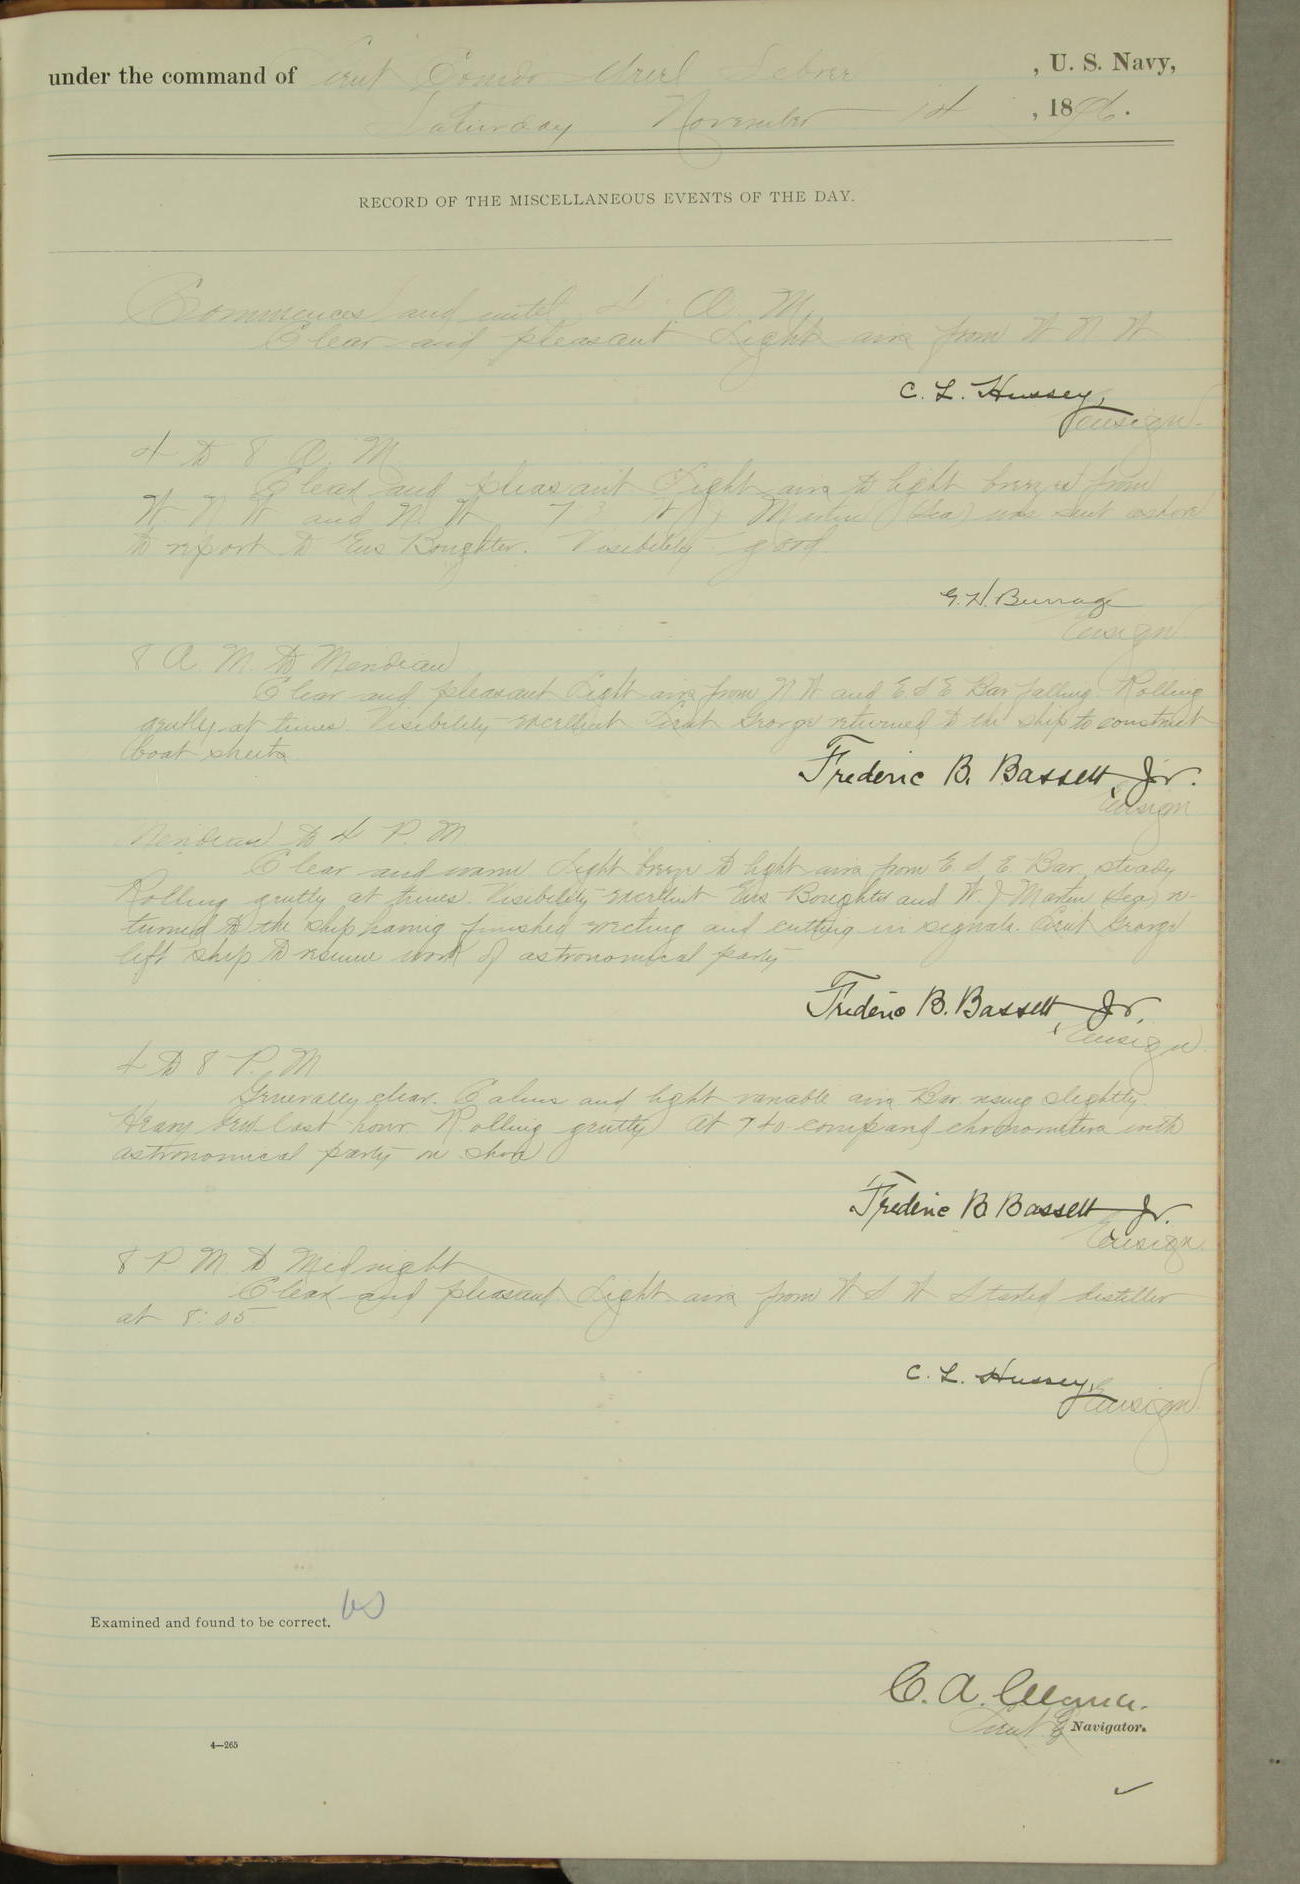 under the command of Lieut Comdr Uriel Sebree , U. S. Navy,
Saturday November 14 , 1896.
RECORD OF THE MISCELLANEOUS EVENTS OF THE DAY.
Commences and until 4 A. M.
Clear and pleasant Light airs from W N W
C. L. Hussey,
Ensign.
4 to 8 A. M
Clear and pleasant Light airs to light breezes from
W N W and N. W. W. J. Martin (Sea) was sent ashore
to report to Ens Boughter. Visibility good.
G. H. Burrage
Ensign
8 A. M. to Meridian
Clear and pleasant Light airs from N W and E S E Bar falling. Rolling
gently at times. Visibility excellent Lieut George returned to the ship to construct
boat sheets.
Frederic B. Bassett, Jr.
Ensign
Meridian to 4 P. M
Clear and warm Light breeze to light airs from E S E. Bar steady
Rolling gently at times. Visibility excellent Ens Boughter and W. J Martin (Sea) re-
turned to the ship having finished erecting and cutting in signals. Lieut George
left ship to resume work of astronomical party
Frederic B. Bassett, Jr.
Ensign
4 to 8 P. M
Generally clear. Calms and light variable airs Bar rising slightly.
Heavy dew last hour Rolling gently At 7 40 compared chronometers with
astronomical party on shore
Frederic B Bassett Jr.
Ensign
8 P M to Midnight
Clear and pleasant Light airs from W S W Started distiller
at 8:05
C. L. Hussey,
Ensign
Examined and found to be correct.
C. A.
Lieut & Navigator.
4—265